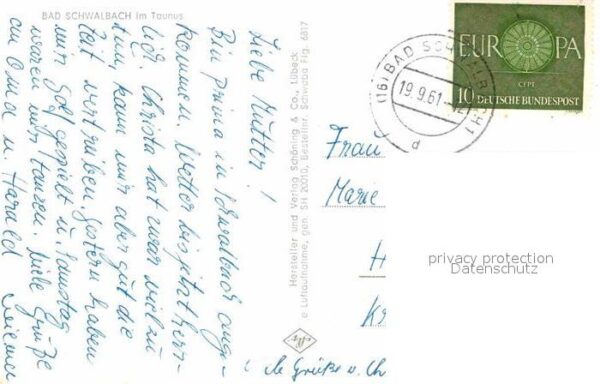 BAD SCHWALBACH im Taunus
Liebe Mutter!
Bin prima in Schwalbach ange-
kommen. Wetter bis jetzt herr-
lich. Christa hat zwar viel zu
tun, kann mir aber gut die
Zeit vertreiben. Gestern haben
wir Golf gespielt u. Samstag
waren wir tanzen. Viele Grüße
an Oma u. Harald
Viele Grüße v. Ch
Hersteller und Verlag Schöning & Co., Lübeck
© Luftaufnahme, gen. SH 20/10, Bestellnr. Schwaba Flg. 6817
(16) BAD SCHWALBACH 1
19.9.61
d
EUROPA
CEPT
10 DEUTSCHE BUNDESPOST
Frau
Marie
H
Kr
privacy protection
Datenschutz